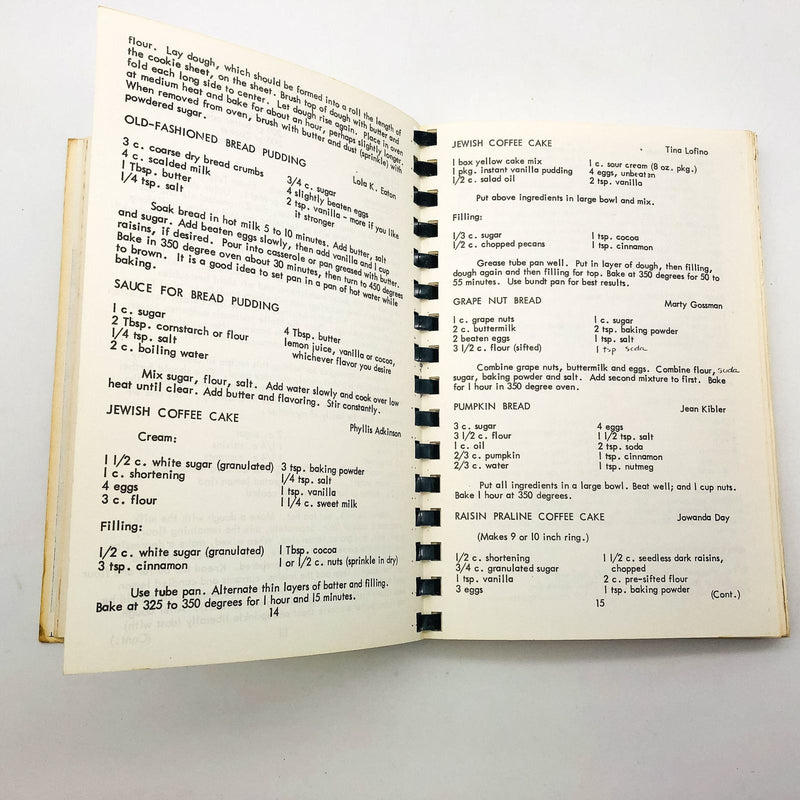 flour. Lay dough, which should be formed into a roll the length of
the cookie sheet, on the sheet. Brush top of dough with butter and
fold each long side to center. Let dough rise again. Place in oven
at medium heat and bake for about an hour, perhaps slightly longer.
When removed from oven, brush with butter and dust (sprinkle) with
powdered sugar.
OLD-FASHIONED BREAD PUDDING
Lola K. Eaton
3 c. coarse dry bread crumbs
4 c. scalded milk
1 Tbsp. butter
1/4 tsp. salt
3/4 c. sugar
4 slightly beaten eggs
2 tsp. vanilla - more if you like
it stronger
Soak bread in hot milk 5 to 10 minutes. Add butter, salt
and sugar. Add beaten eggs slowly, then add vanilla and 1 cup
raisins, if desired. Pour into casserole or pan greased with butter.
Bake in 350 degree oven about 30 minutes, then turn to 450 degrees
to brown. It is a good idea to set pan in a pan of hot water while
baking.
SAUCE FOR BREAD PUDDING
1 c. sugar
2 Tbsp. cornstarch or flour
1/4 tsp. salt
2 c. boiling water
4 Tbsp. butter
lemon juice, vanilla or cocoa,
whichever flavor you desire
Mix sugar, flour, salt. Add water slowly and cook over low
heat until clear. Add butter and flavoring. Stir constantly.
JEWISH COFFEE CAKE
Phyllis Adkinson
Cream:
1 1/2 c. white sugar (granulated)
1 c. shortening
4 eggs
3 c. flour
3 tsp. baking powder
1/4 tsp. salt
1 tsp. vanilla
1 1/4 c. sweet milk
Filling:
1 1/2 c. white sugar (granulated)
3 tsp. cinnamon
1 Tbsp. cocoa
1 or 1/2 c. nuts (sprinkle in dry)
Use tube pan. Alternate thin layers of batter and filling.
Bake at 325 to 350 degrees for 1 hour and 15 minutes.
14
JEWISH COFFEE CAKE
Tina Lofino
1 box yellow cake mix
1 pkg. instant vanilla pudding
1/2 c. salad oil
1 c. sour cream (8 oz. pkg.)
4 eggs, unbeaten
2 tsp. vanilla
Put above ingredients in large bowl and mix.
Filling:
1/3 c. sugar
1/2 c. chopped pecans
1 tsp. cocoa
1 tsp. cinnamon
Grease tube pan well. Put in layer of dough, then filling,
dough again and then filling for top. Bake at 350 degrees for 50 to
55 minutes. Use bundt pan for best results.
GRAPE NUT BREAD
Marty Gossman
1 c. grape nuts
2 c. buttermilk
2 beaten eggs
3 1/2 c. flour (sifted)
1 c. sugar
2 tsp. baking powder
1 tsp. salt
1 tsp soda
Combine grape nuts, buttermilk and eggs. Combine flour, soda
sugar, baking powder and salt. Add second mixture to first. Bake
for 1 hour in 350 degree oven.
PUMPKIN BREAD
Jean Kibler
3 c. sugar
3 1/2 c. flour
1 c. oil
2/3 c. pumpkin
2/3 c. water
4 eggs
1 1/2 tsp. salt
2 tsp. soda
1 tsp. cinnamon
1 tsp. nutmeg
Put all ingredients in a large bowl. Beat well; and 1 cup nuts.
Bake 1 hour at 350 degrees.
RAISIN PRALINE COFFEE CAKE
Jowanda Day
(Makes 9 or 10 inch ring.)
1/2 c. shortening
3/4 c. granulated sugar
1 tsp. vanilla
3 eggs
1 1/2 c. seedless dark raisins,
chopped
2 c. pre-sifted flour
1 tsp. baking powder
(Cont.)
15